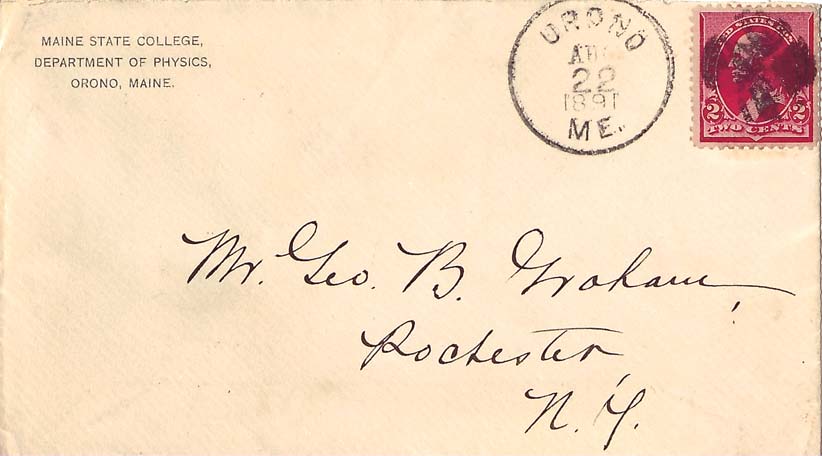 MAINE STATE COLLEGE,
DEPARTMENT OF PHYSICS,
ORONO, MAINE.
ORONO
AUG
22
1891
ME.
UNITED STATES POSTAGE
2 2
TWO CENTS
Mr. Geo. B. Graham,
Rochester,
N.Y.